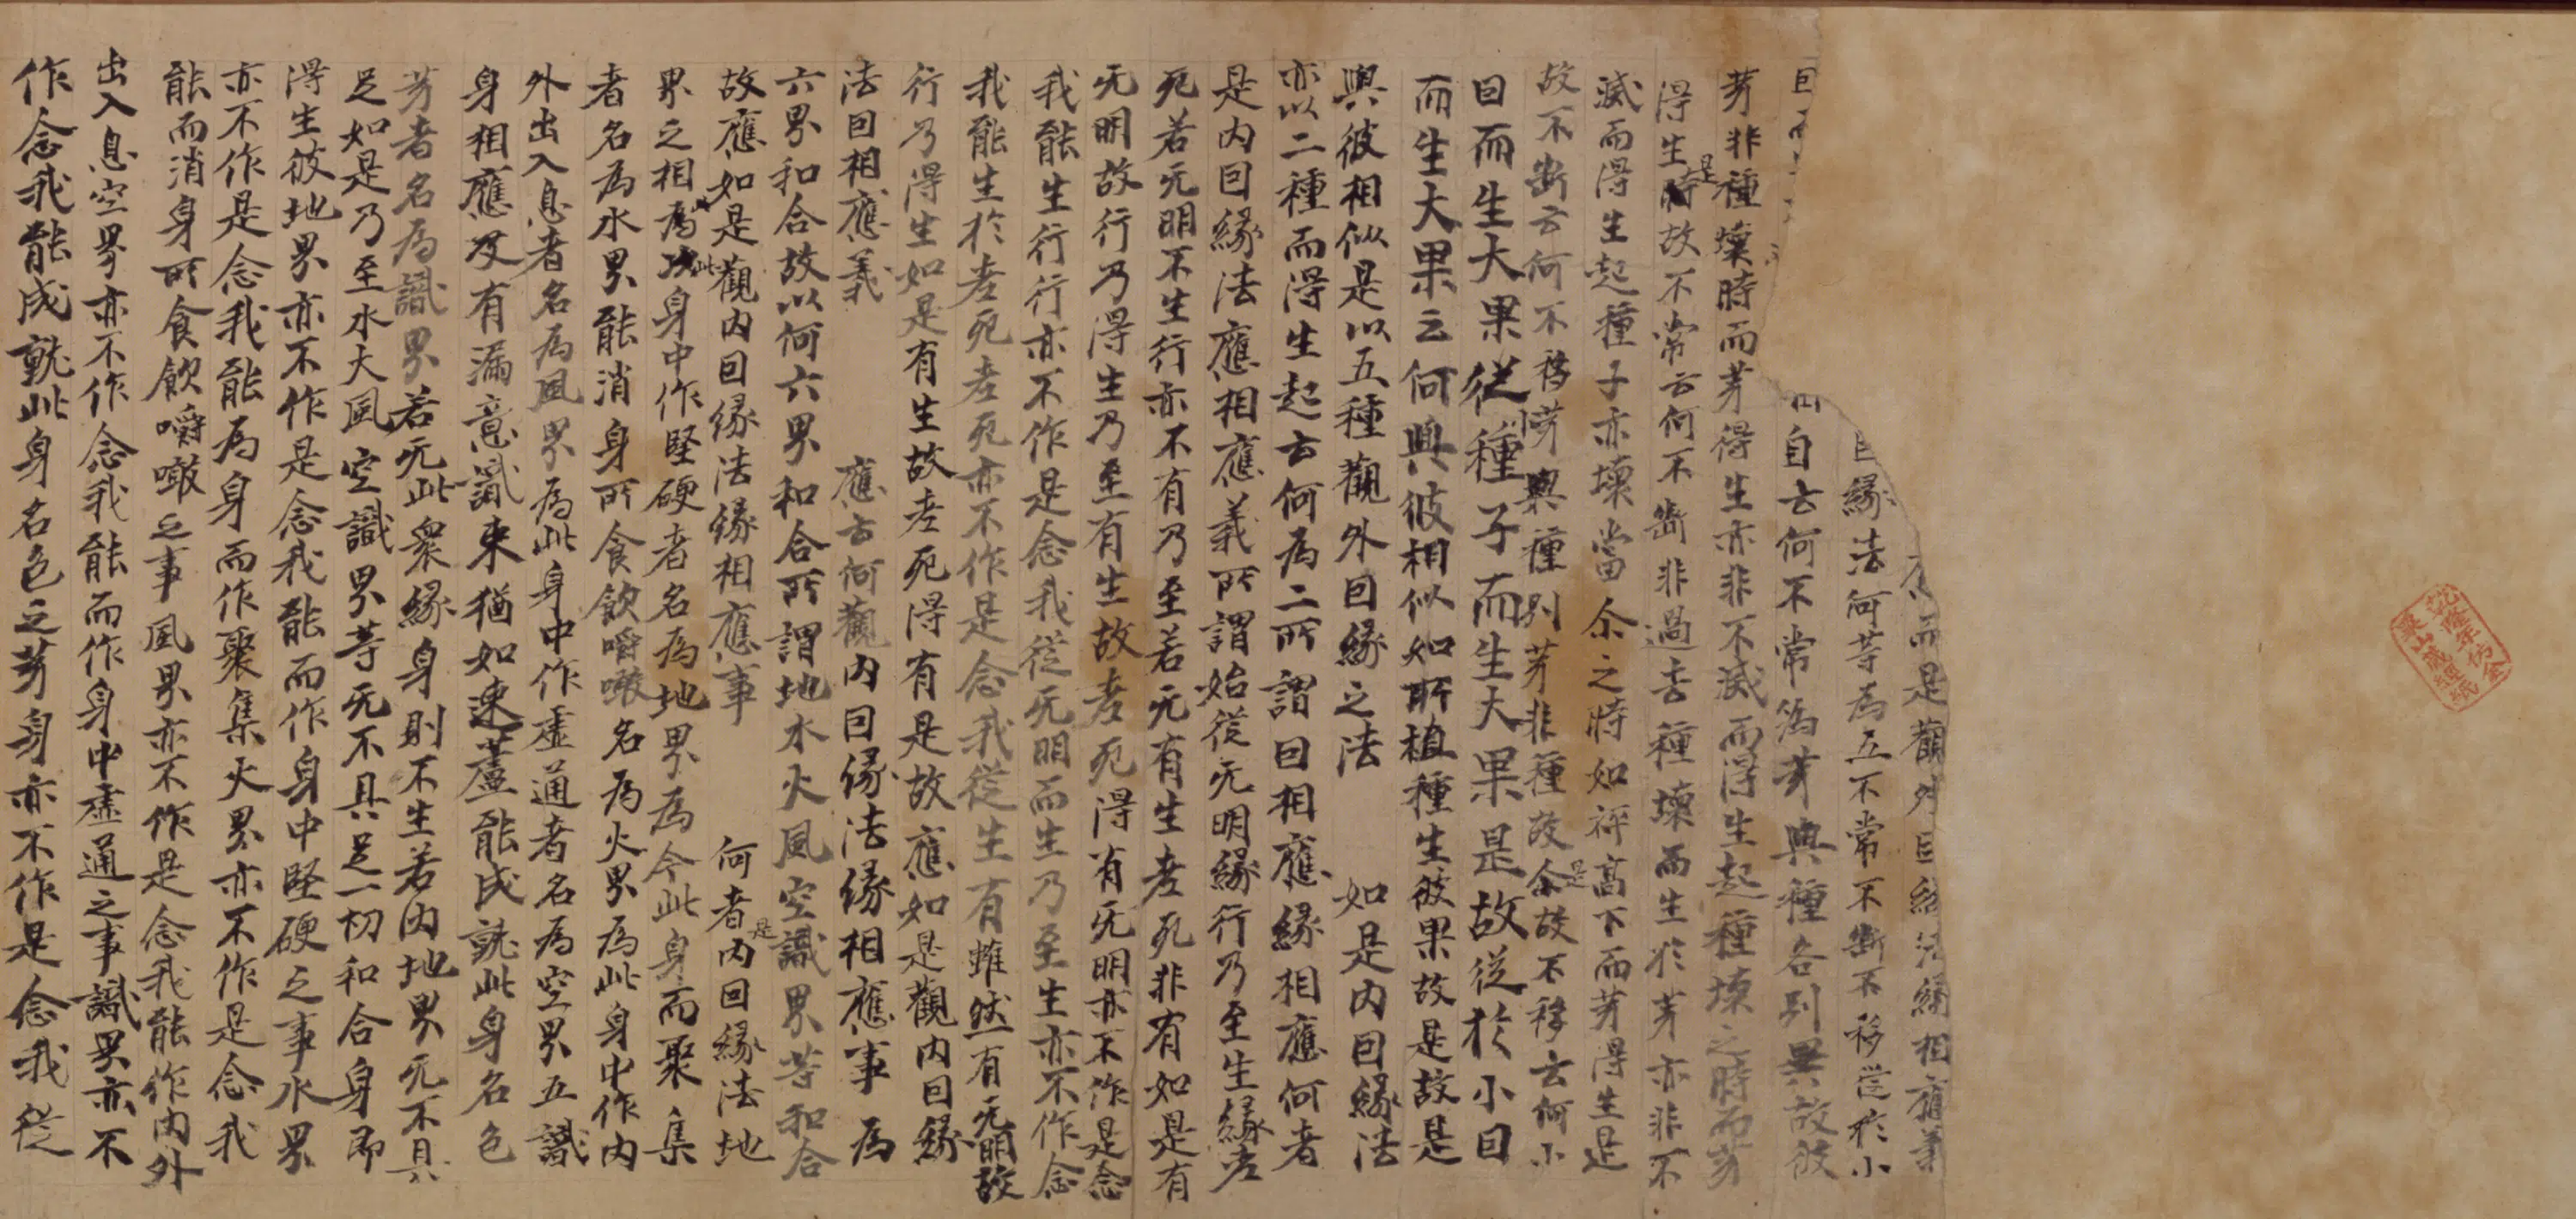 而是觀外因緣法緣相應義
因緣法何等為五不常不斷不移從於小
自云何不常為芽與種各別異故彼
芽非種壞時而芽得生亦非不滅而得生起種壞之時而芽
得生是時故不常云何不斷非過去種壞而生於芽亦非不
滅而得生起種子亦壞當尒之時如秤高下而芽得生是
故不斷云何不移芽與種別芽非種故是故不移云何小
因而生大果從種子而生大果是故從於小因
而生大果云何與彼相似如所植種生彼果故是故是
與彼相似是以五種觀外因緣之法 如是內因緣法
亦以二種而得生起云何為二所謂因相應緣相應何者
是內因緣法應相應義所謂始從无明緣行乃至生緣老
死若无明不生行亦不有乃至若无有生老死非有如是有
无明故行乃得生乃至有生故老死得有无明亦不作是念
我能生行行亦不作是念我從无明而生乃至生亦不作念
我能生於老死老死亦不作是念我從生有雖然有无明故
行乃得生如是有生故老死得有是故應如是觀內因緣
法因相應義 應云何觀內因緣法緣相應事為
六界和合故以何六界和合所謂地水火風空識界等和合
故應如是觀內因緣法緣相應事 何者是內因緣法地
界之相為此身中作堅硬者名為地界為令此身而聚集
者名為水界能消身所食飲嚼噉名為火界為此身中作內
外出入息者名為風界為此身中作虛通者名為空界五識
身相應及有漏意識束猶如束蘆能成就此身名色
芽者名為識界若无此眾緣身則不生若內地界无不具
足如是乃至水火風空識界等无不具足一切和合身即
得生彼地界亦不作是念我能而作身中堅硬之事水界
亦不作是念我能為身而作聚集火界亦不作是念我
能而消身所食飲嚼噉之事風界亦不作是念我能作內外
出入息空界亦不作念我能而作身中虛通之事識界亦不
作念我能成就此身名色之芽身亦不作是念我從